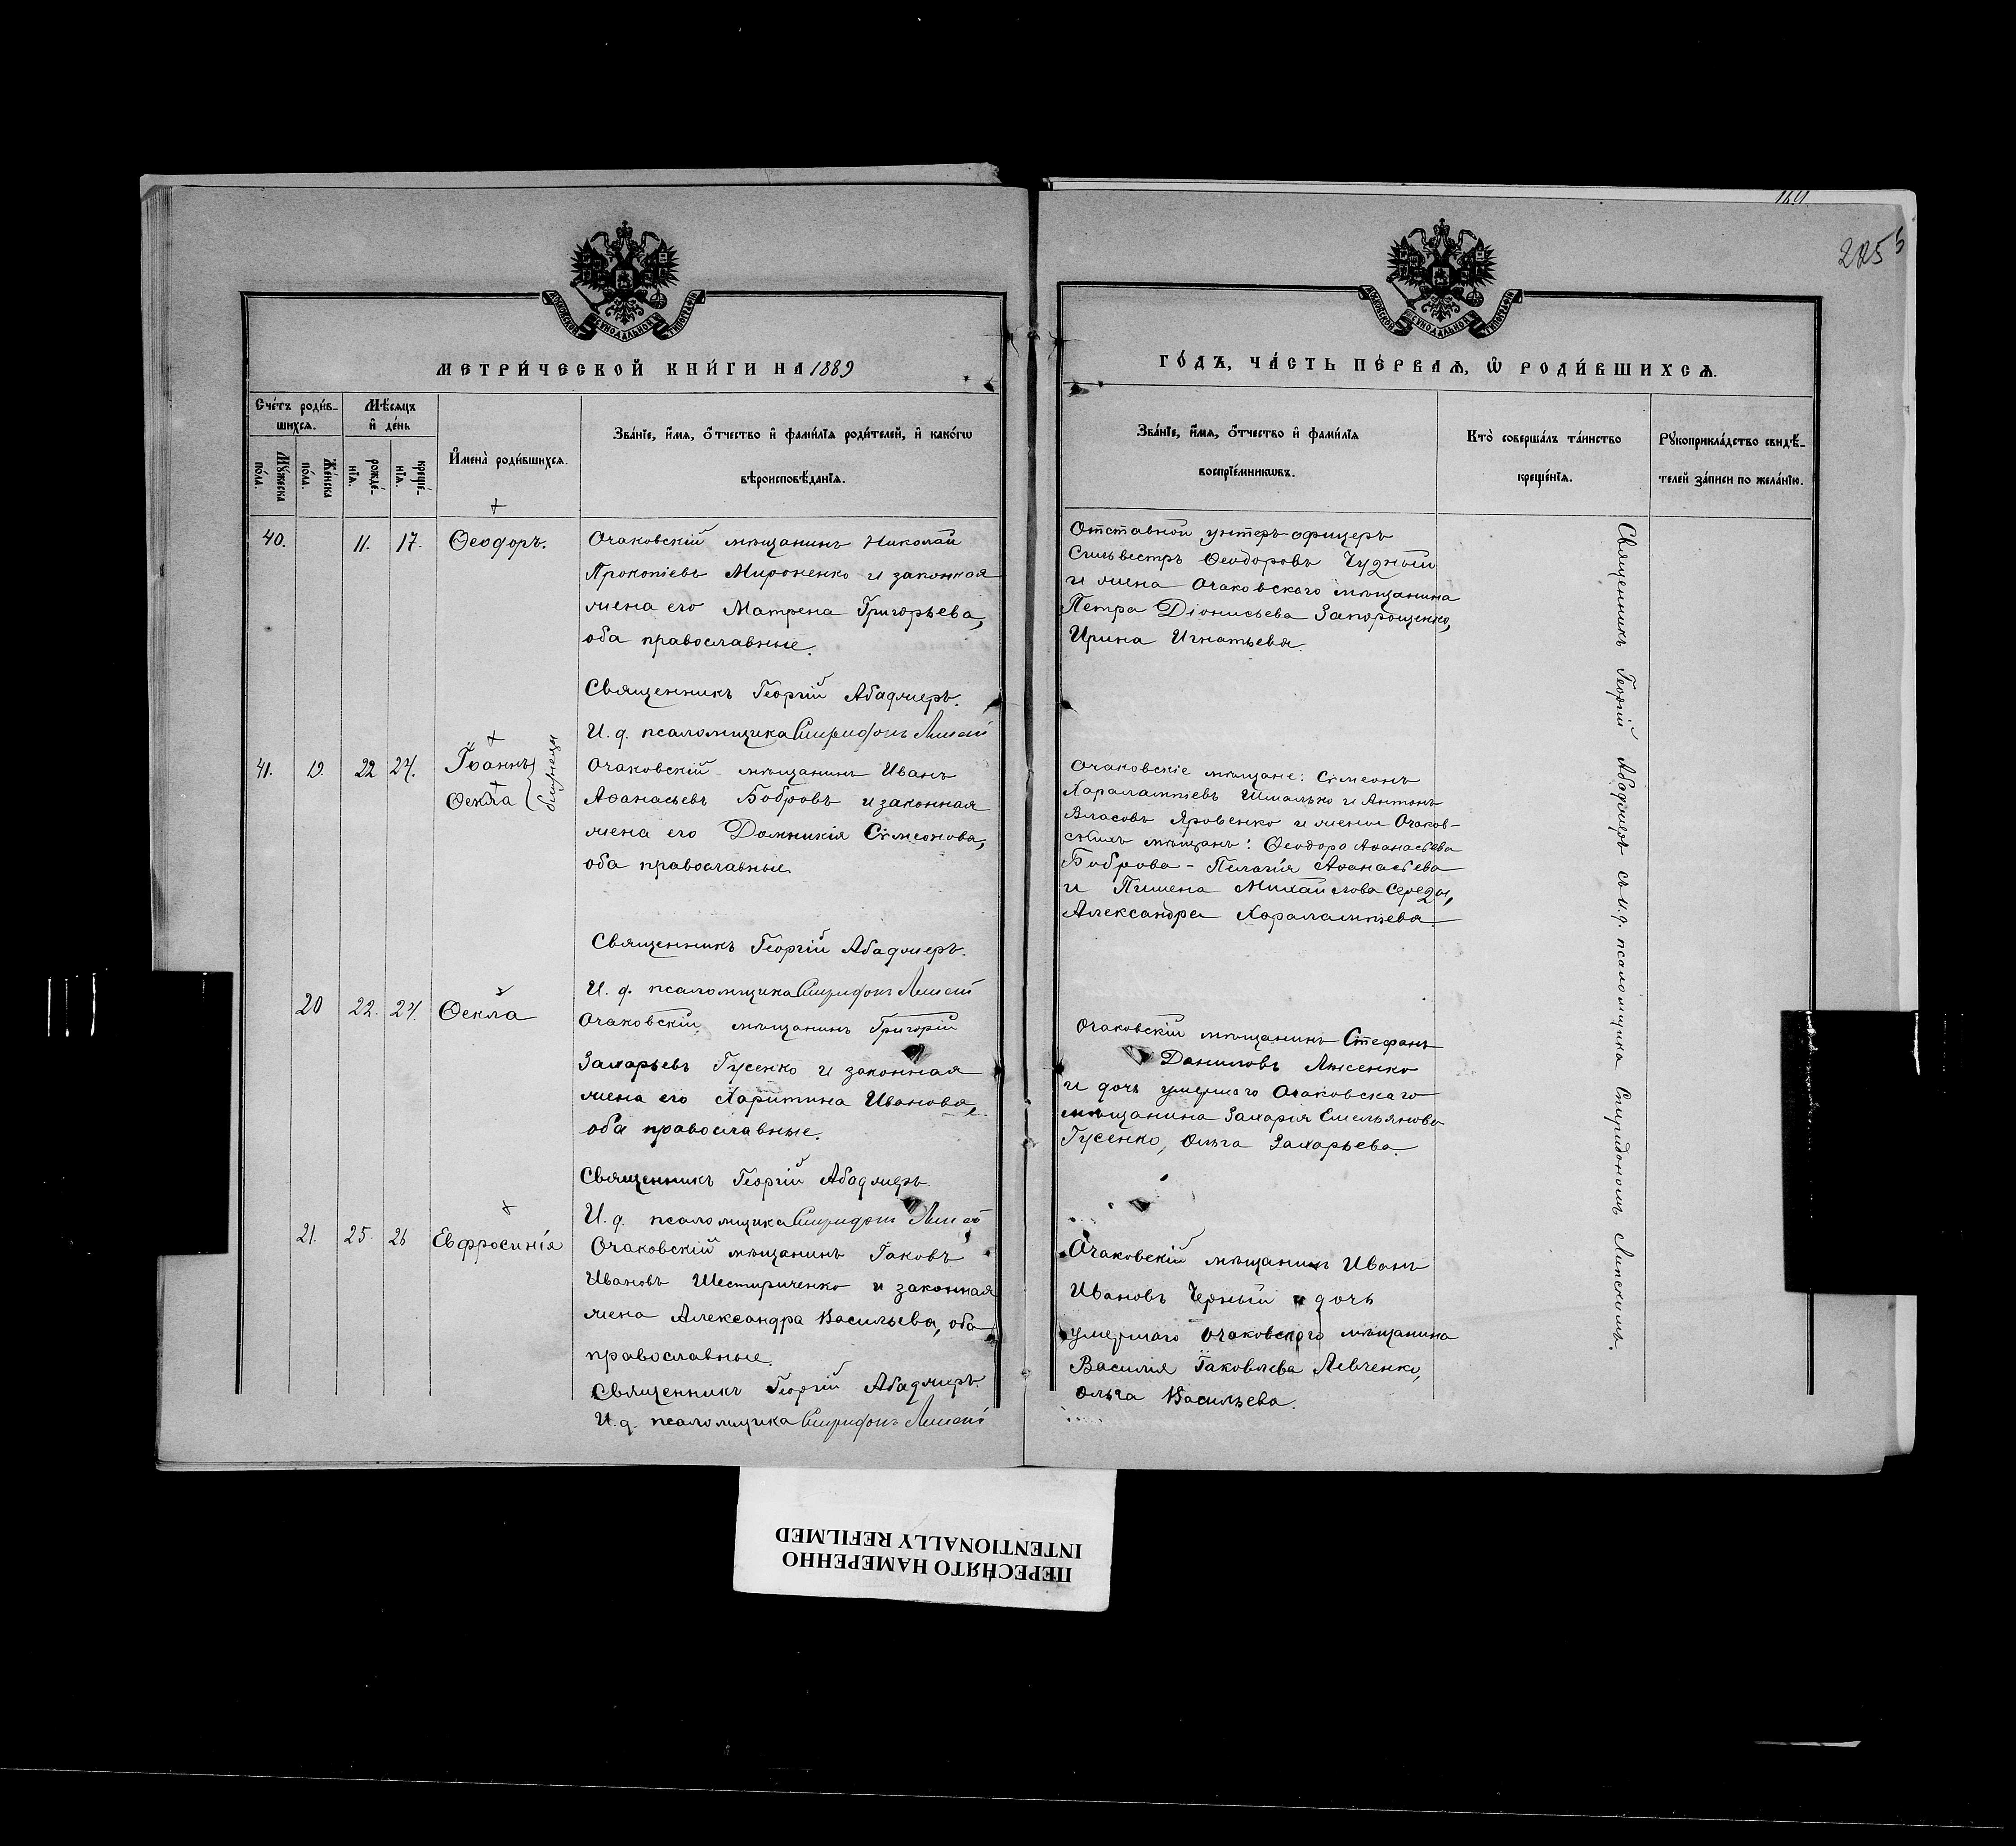 149.
225
МОСКОВСКОЙ СѴНОДАЛЬНОЙ ТИПОГРАФІИ
МОСКОВСКОЙ СѴНОДАЛЬНОЙ ТИПОГРАФІИ
МЕТРИ́ЧЕСКОЙ КНИ́ГИ НА 1889
ГО́ДЪ, ЧА́СТЬ ПЕ́РВАѦ, Ѡ҆ РОДИ́ВШИХСѦ.
Сче́тъ роди́в-
шихсѧ.
Мꙋ́жеска
по́ла.
Же́нска
по́ла.
Мѣ́сѧцъ
и҆ де́нь
рожде́-
нїѧ.
креще́-
нїѧ.
И҆мена̀ роди́вшихсѧ.
Зва́нїе, и҆́мѧ, ѻ҆́тчество и҆ фами́лїѧ роди́телей, и҆ како́гѡ
вѣроисповѣ́данїѧ.
Зва́нїе, и҆́мѧ, ѻ҆́тчество и҆ фами́лїѧ
воспрїе́мникѡвъ.
Кто̀ соверша́лъ та́инство
креще́нїѧ.
Рꙋкоприкла́дство свидѣ́-
телей за́писи по жела́нїю.
40. 11. 17. Ѳеодоръ.
Очаковскій мѣщанинъ Николай
Прокопіевъ Мироненко и законная
жена его Матрена Григорьева,
оба православные.
Священникъ Георгій Абаджеръ.
И. д. псаломщика Спиридонъ Липскій
Отставной унтеръ офицеръ
Сильвестръ Ѳеодоровъ Чудный
и жена Очаковского мѣщанина
Петра Діонисьева Запорощенко,
Ирина Игнатьева.
41. 19. 22 24. Іоаннъ
Ѳекла
близнецы
Очаковскій мѣщанинъ Иванъ
Аѳанасьевъ Бобровъ и законная
жена его Домникія Сѵмеонова,
оба православные.
Священникъ Георгій Абаджеръ.
И. д. псаломщика Спиридонъ Липскій
Очаковскіе мѣщане: Сѵмеонъ
Харалампіевъ Шмалько и Антонъ
Власовъ Яровенко и жены Очаков-
скихъ мѣщанъ: Ѳеодора Аѳанасьева
Боброва - Пелагія Аѳанасьева
и Пимена Михайлова Середы,
Александра Харалампіева.
20 22. 24. Ѳекла
Очаковскій мѣщанинъ Григорій
Захарьевъ Гусенко и законная
жена его Харитина Иванова,
оба православные.
Священникъ Георгій Абаджеръ.
И. д. псаломщика Спиридонъ Липскій
Очаковскій мѣщанинъ Стефанъ
Даниловъ Лысенко
и дочь умершаго Очаковскаго
мѣщанина Захарія Емельянова
Гусенко, Ольга Захарьева.
21. 25. 26 Евфросинія
Очаковскій мѣщанинъ Іаковъ
Ивановъ Шестириченко и законная
жена Александра Васильева, оба
православные.
Священникъ Георгій Абаджеръ.
И. д. псаломщика Спиридонъ Липскій
Очаковскій мѣщанинъ Иванъ
Ивановъ Черный и дочь
умершаго Очаковского мѣщанина
Василія Іаковлева Левченко,
Ольга Васильева.
Священникъ Георгій Абаджеръ съ и. д. псаломщика Спиридономъ Липскимъ.
ПЕРЕСНЯТО НАМЕРЕННО
INTENTIONALLY REFILMED